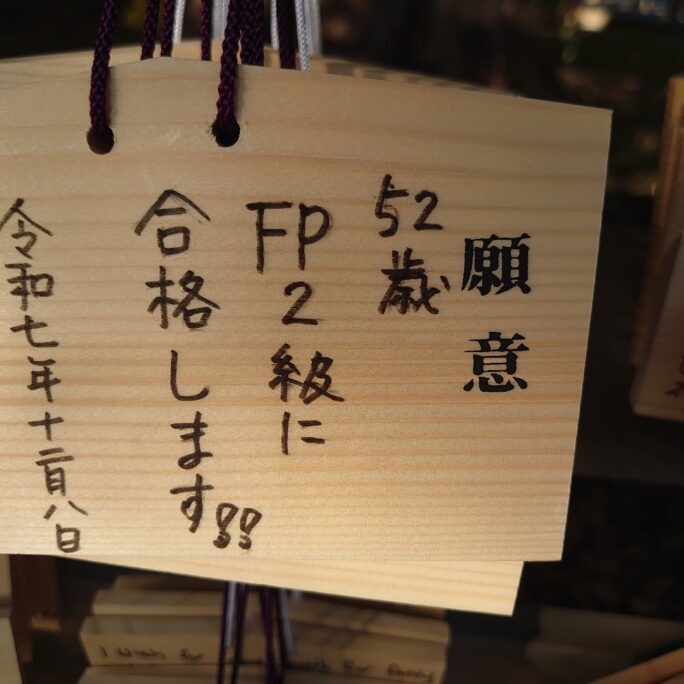 願意
52歳
FP2級に
合格します!!
令和七年十二月八日
I wish for
for family